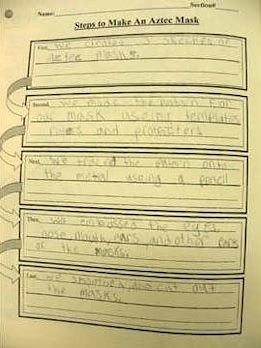 Name: Section#
Steps to Make An Aztec Mask
First, We created 3 sketches of
masks.
Second, We made the pattern for
our mask useing templates
rulers and protracters
Next, We traced the patern onto
the metal useing a pencil
Then, we embossed the eyes
nose, mouth, ears and other parts
of the masks.
Last, We and cut out
the masks.